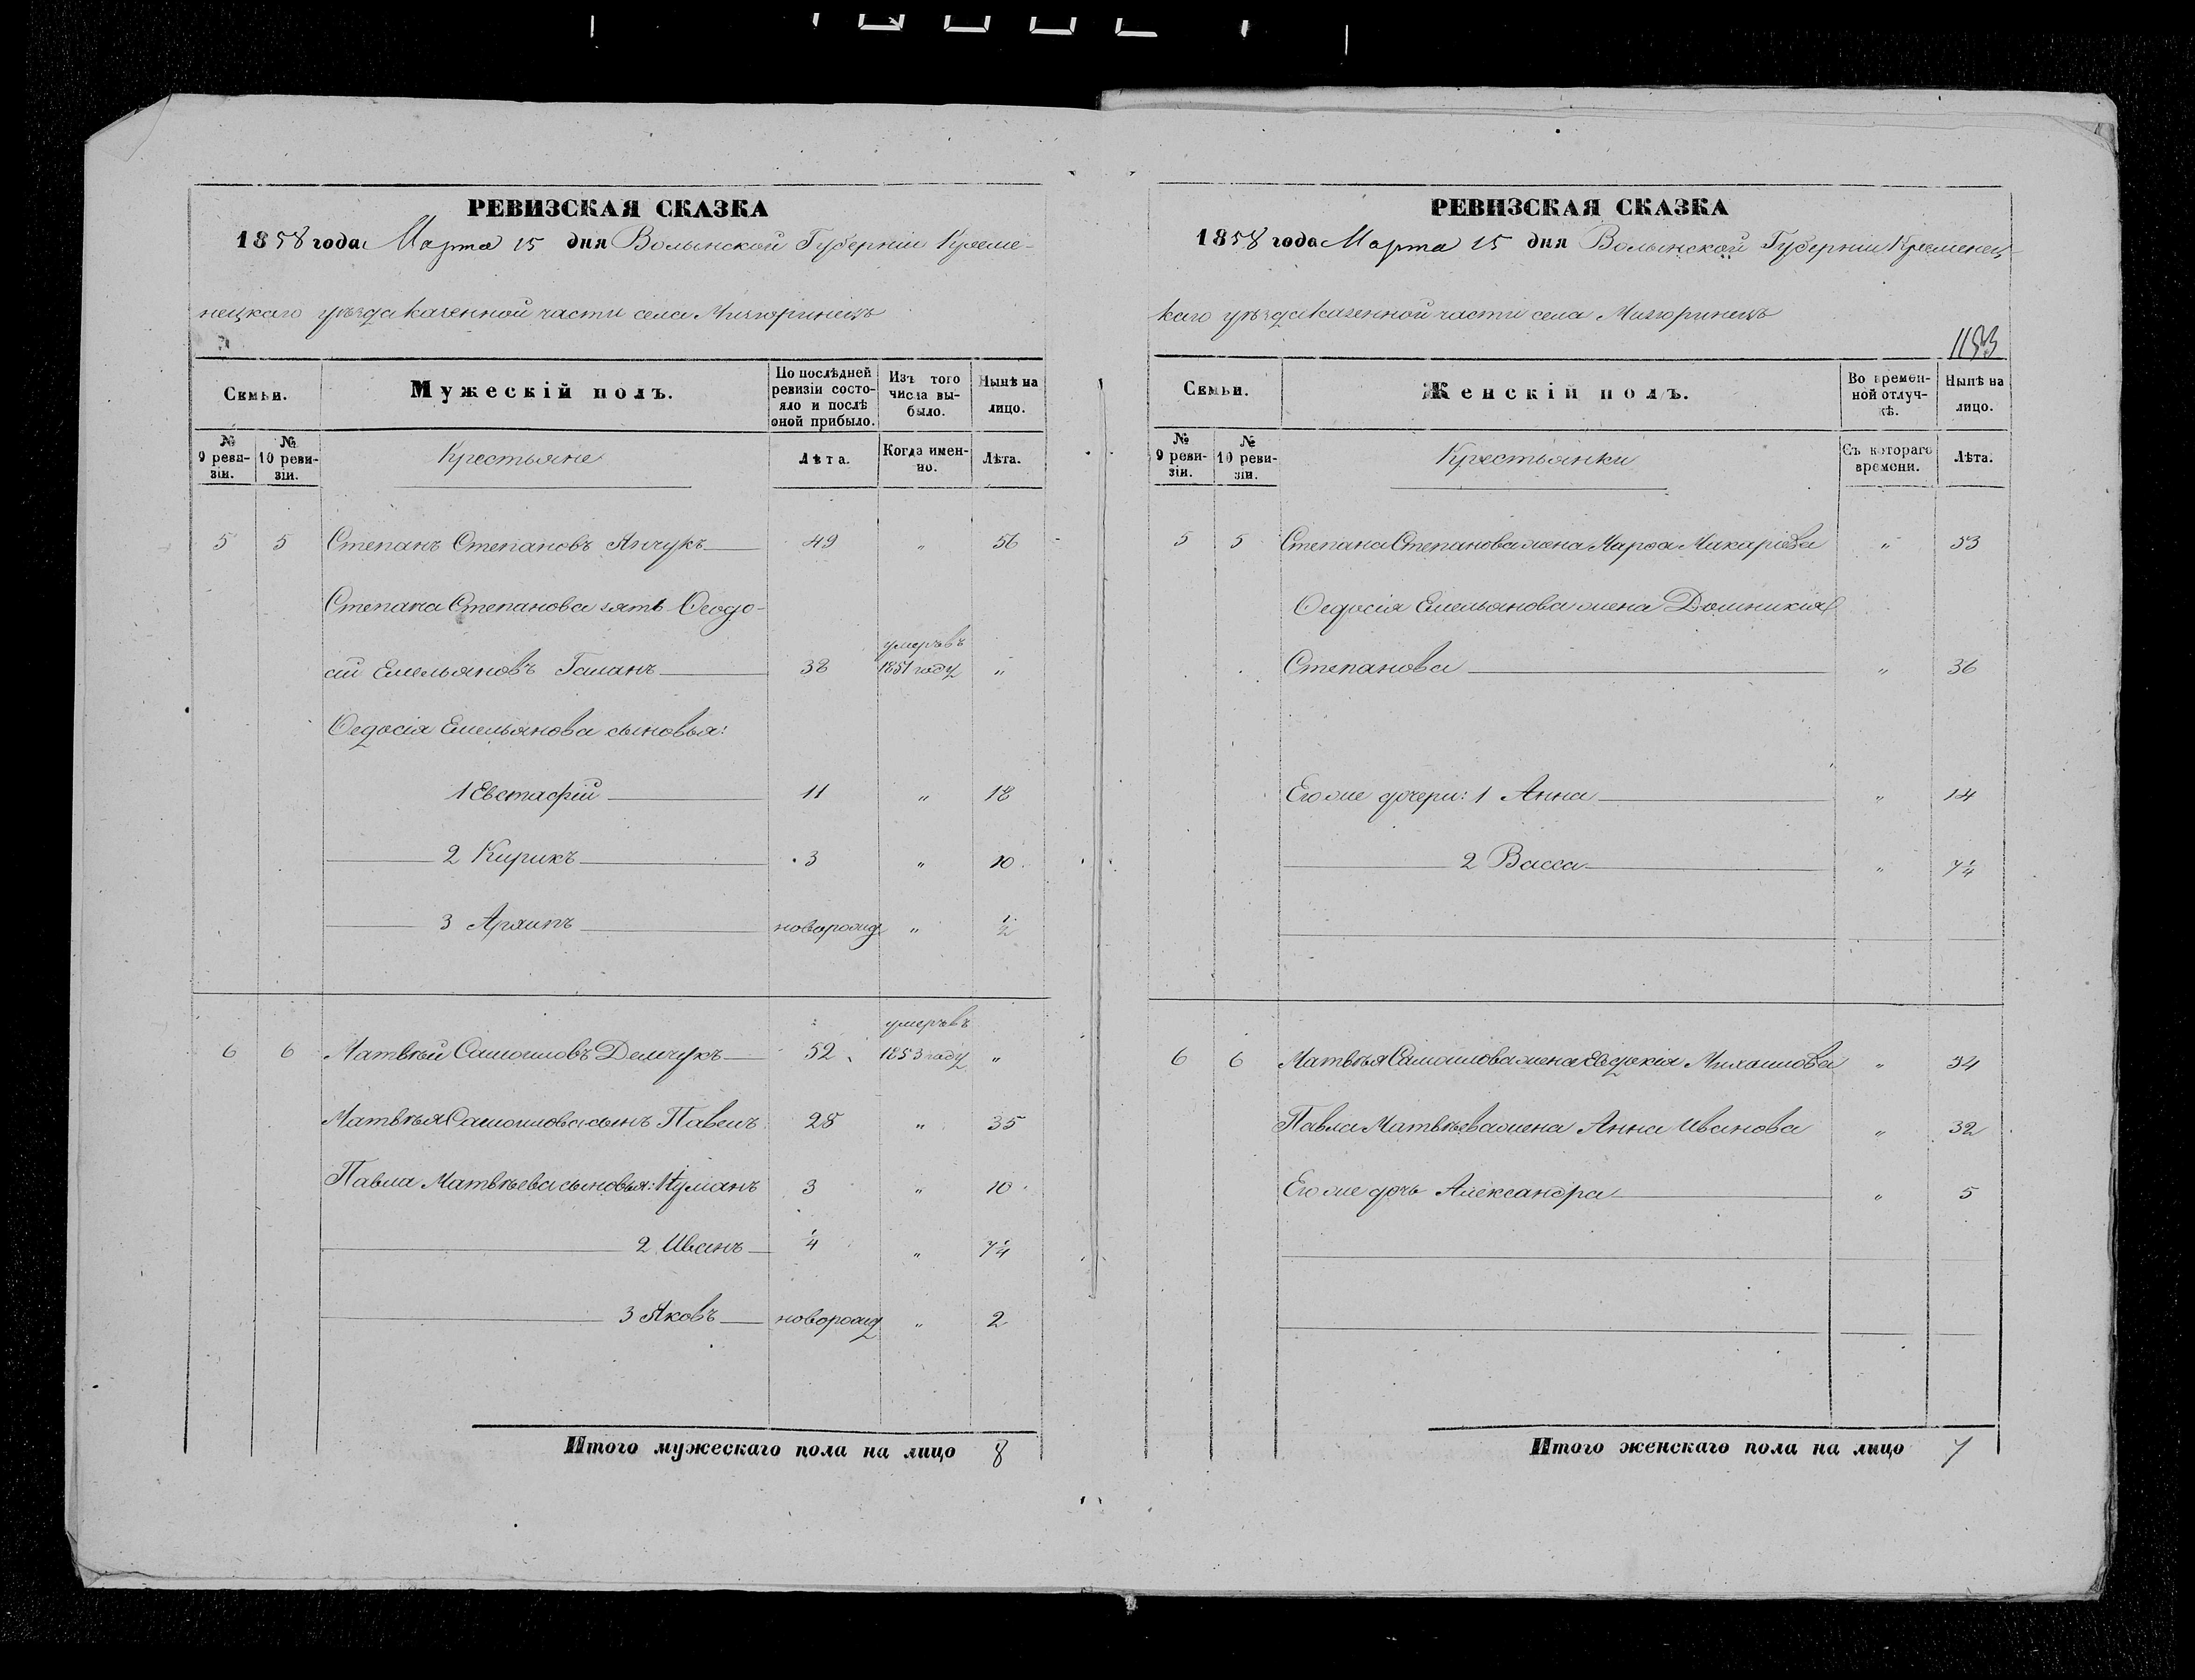 РЕВИЗСКАЯ СКАЗКА
1858 года Марта 15 дня Волынской Губерніи Креме-
нецкаго уѣзда казенной части села Мизюринецъ
Семьи.
Мужескій полъ.
По послѣдней ревизіи состояло и послѣ оной прибыло.
Изъ того числа выбыло.
Нынѣ на лицо.
№ 9 ревизіи.
№ 10 ревизіи.
Крестьяне
Лѣта.
Когда именно.
Лѣта.
5 5 Степанъ Степановъ Янчукъ 49 " 56
Степана Степанова зять Ѳеодо-
сій Емельяновъ 38 умеръ въ 1851 году "
Ѳедосія Емельянова сыновья:
1 Евстафій 11 " 18
2 Кирикъ 3 " 10
3 Архипъ новорожд " ½
6 6 Матвѣй Самоиловъ Демчукъ 52 умеръ въ 1853 году "
Матвѣя Самоилова сынъ Павелъ 28 " 35
Павла Матвѣева сыновья: 1 Нуманъ 3 " 10
2 Иванъ ¼ " 7¼
3 Яковъ новорожд " 2
Итого мужескаго пола на лицо 8
РЕВИЗСКАЯ СКАЗКА
1858 года Марта 15 дня Волынской Губерніи Кременец-
каго уѣзда казенной части села Мизюринецъ
1153
Семьи.
Женскій полъ.
Во временной отлучкѣ.
Нынѣ на лицо.
№ 9 ревизіи.
№ 10 ревизіи.
Крестьянки
Съ котораго времени.
Лѣта.
5 5 Степана Степанова жена Марѳа Макаріева " 53
Ѳедосія Емельянова жена Домникія
Степанова " 36
Его же дочери: 1 Анна " 14
2 Васса " 7¼
6 6 Матвѣя Самоилова жена Евдокія Михаилова " 54
Павла Матвѣева жена Анна Иванова " 32
Его же дочь Александра " 5
Итого женскаго пола на лицо 7